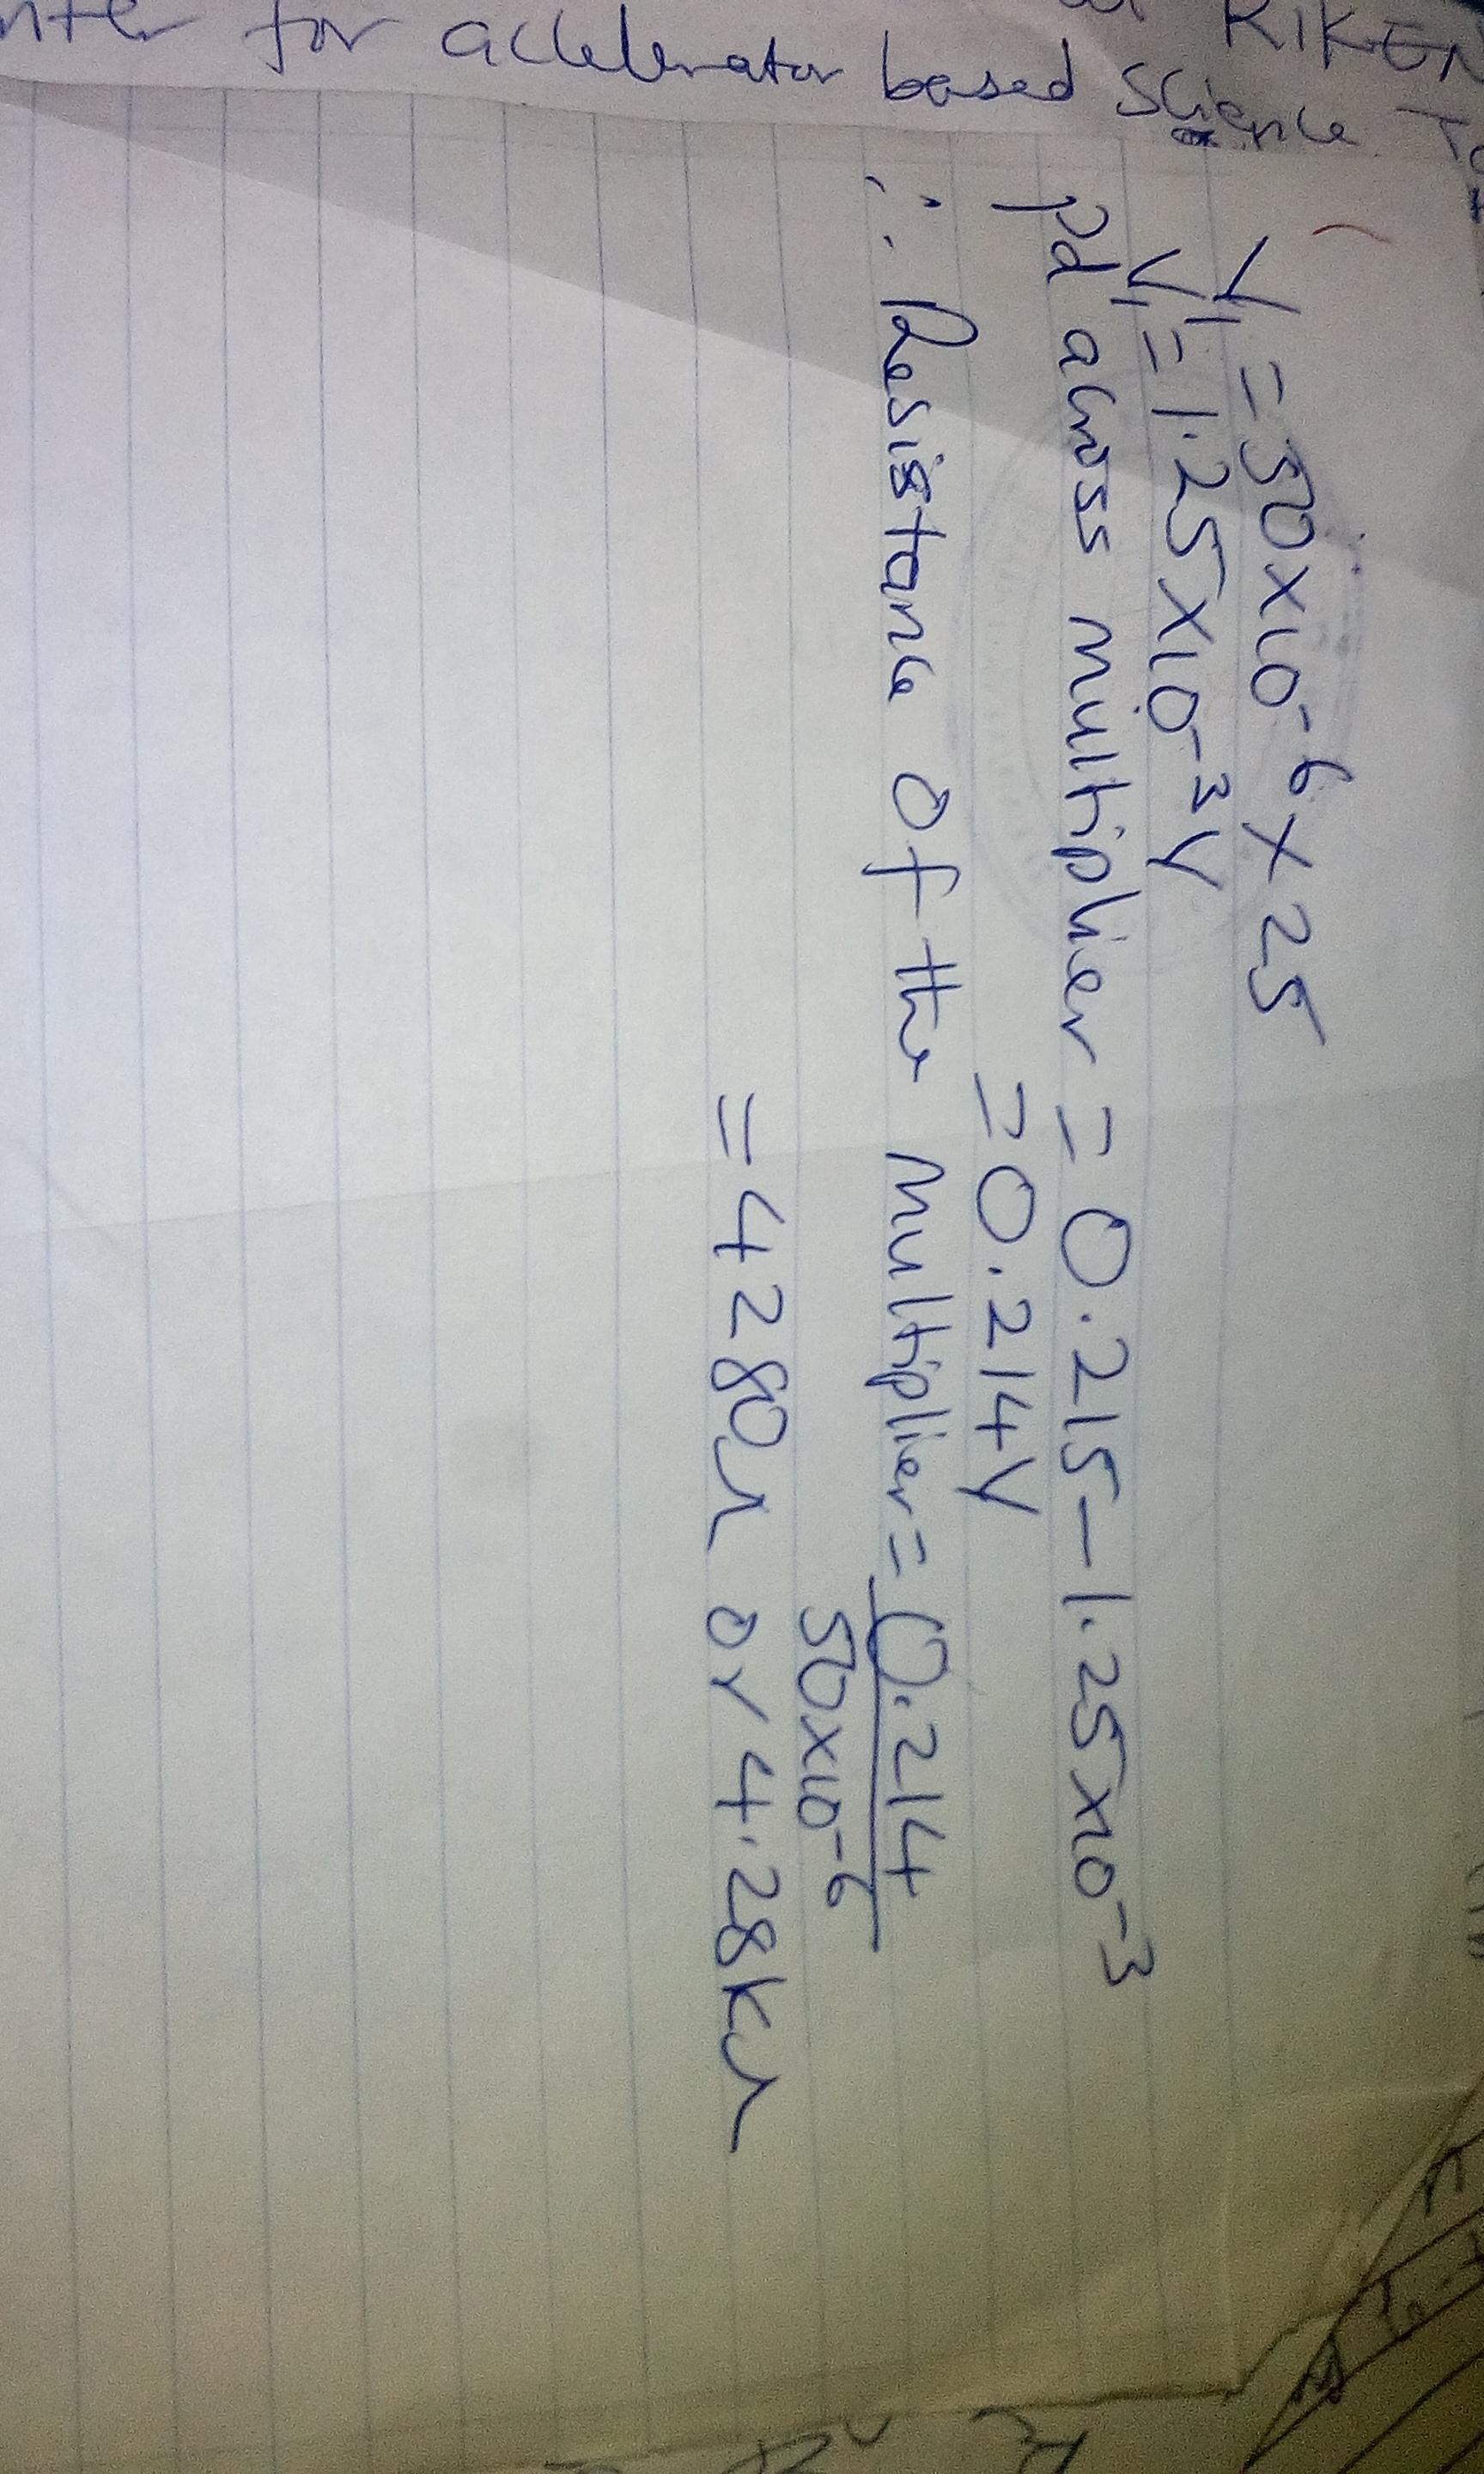 for accelerator based Science
RIKEN
V₁ = 50x10⁻⁶ x 25
V₁ = 1.25x10⁻³V
pd across multiplier = 0.215 - 1.25x10⁻³
= 0.214V
∴ Resistance of the multiplier = 0.214
50x10⁻⁶
= 4280Ω or 4.28kΩ